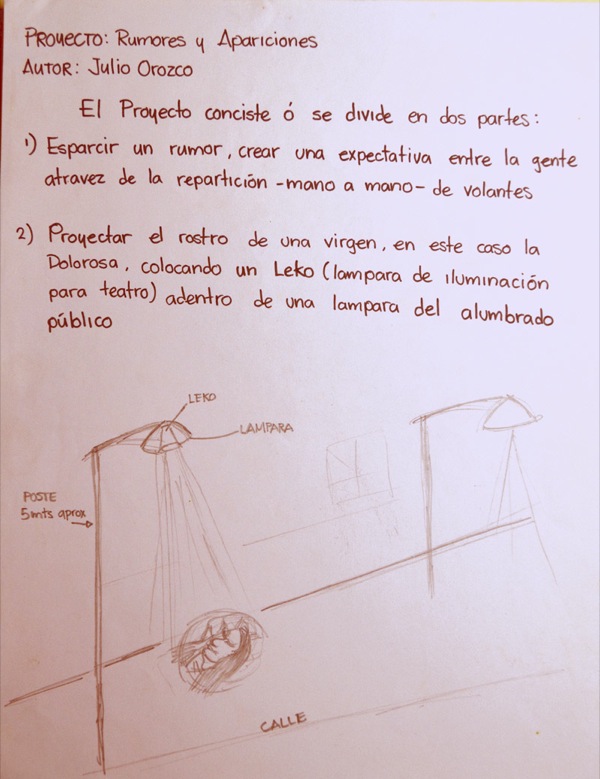 PROYECTO: Rumores y Apariciones
AUTOR: Julio Orozco
El Proyecto conciste ó se divide en dos partes:
1) Esparcir un rumor, crear una expectativa entre la gente
atravez de la repartición -mano a mano- de volantes
2) Proyectar el rostro de una virgen, en este caso la
Dolorosa, colocando un Leko (lampara de iluminación
para teatro) adentro de una lampara del alumbrado
público
LEKO
LAMPARA
POSTE
5mts aprox
CALLE